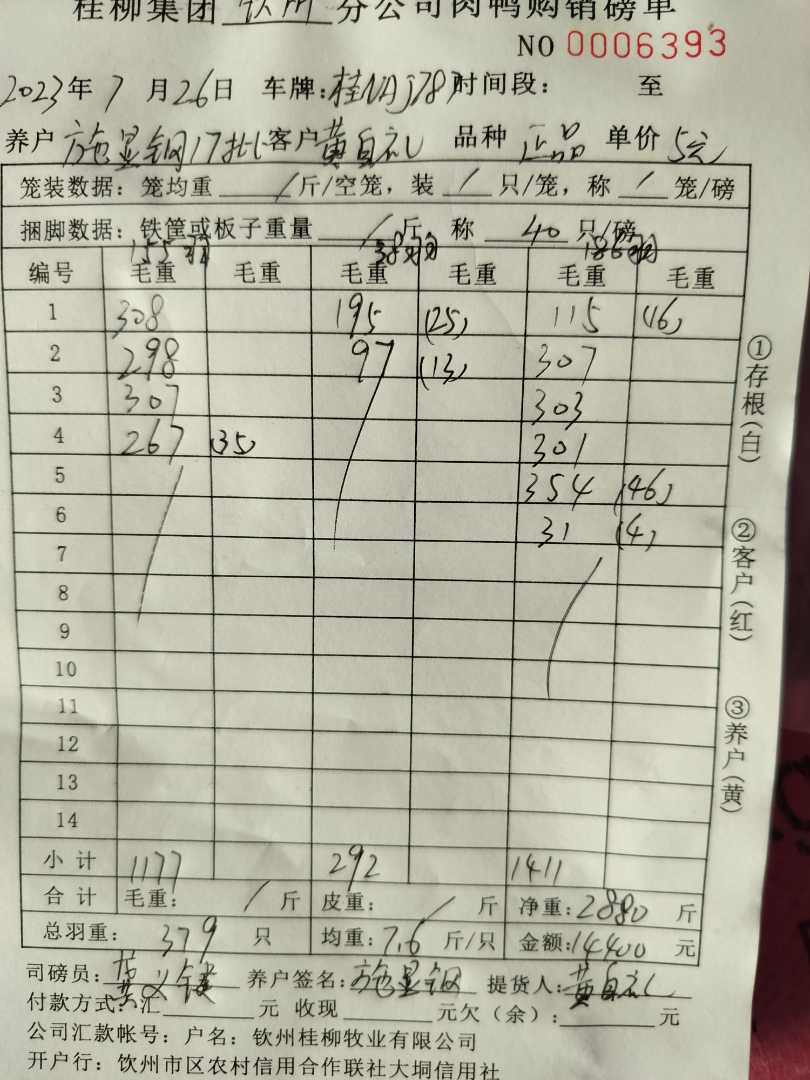 桂柳集团 钦州 分公司肉鸭购销磅单
NO 0006393
2023年 7 月 26日 车牌:桂NAJ787 时间段: 至
养户 施显钢17批 客户 黄自礼 品种 正品 单价 5元
笼装数据: 笼均重 / 斤/空笼, 装 / 只/笼, 称 / 笼/磅
捆脚数据: 铁筐或板子重量 / 斤 称 40 只/磅
155羽 38羽 186羽
编号 毛重 毛重 毛重 毛重 毛重 毛重
1 308 195 (25) 115 (16)
2 298 97 (13) 307
3 307 303
4 267 (35) 301
5 354 (46)
6 31 (4)
7
8
9
10
11
12
13
14
小 计 1177 292 1411
合 计 毛重: / 斤 皮重: / 斤 净重: 2880 斤
总羽重: 379 只 均重: 7.6 斤/只 金额: 14400 元
司磅员: 养户签名: 施显钢 提货人: 黄自礼
付款方式: 汇 元 收现 元欠(余): 元
公司汇款帐号: 户名: 钦州桂柳牧业有限公司
开户行: 饮州市区农村信用合作联社大垌信用社
①存根(白)
②客户(红)
③养户(黄)